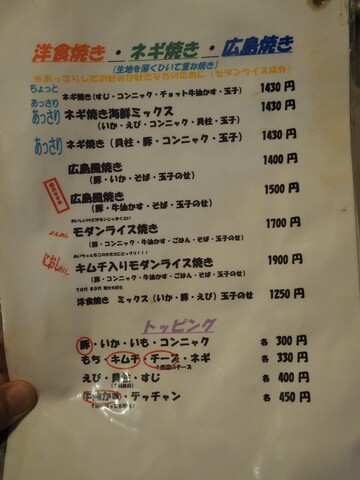 洋食焼き・ネギ焼き・広島焼き
(生地を薄くひいて重ね焼き)
※あっさりしたお好みが好きな方のために(モダンライス以外)
ちょっとあっさり ネギ焼き(すじ・コンニャク・チョット牛油かす・玉子) 1430円
あっさり ネギ焼き海鮮ミックス 1430円
(いか・えび・コンニャク・貝柱・玉子)
あっさり ネギ焼き(貝柱・豚・コンニャク・玉子) 1430円
広島風焼き 1400円
(豚・いか・そば・玉子のせ)
広島風焼き 1500円
(豚・牛油かす・そば・玉子のせ)
モダンライス焼き 1700円
(豚・コンニャク・牛油かす・ごはん・そば・玉子のせ)
キムチ入りモダンライス焼き 1900円
(豚・コンニャク・牛油かす・ごはん・そば・玉子のせ)
洋食焼き ミックス(いか・豚・えび)玉子のせ 1250円
トッピング
豚・いか・いも・コンニャク 各 300円
もち・キムチ・チーズ・ネギ 各 330円
えび・貝柱・すじ 各 400円
牛油かす・テッチャン 各 450円